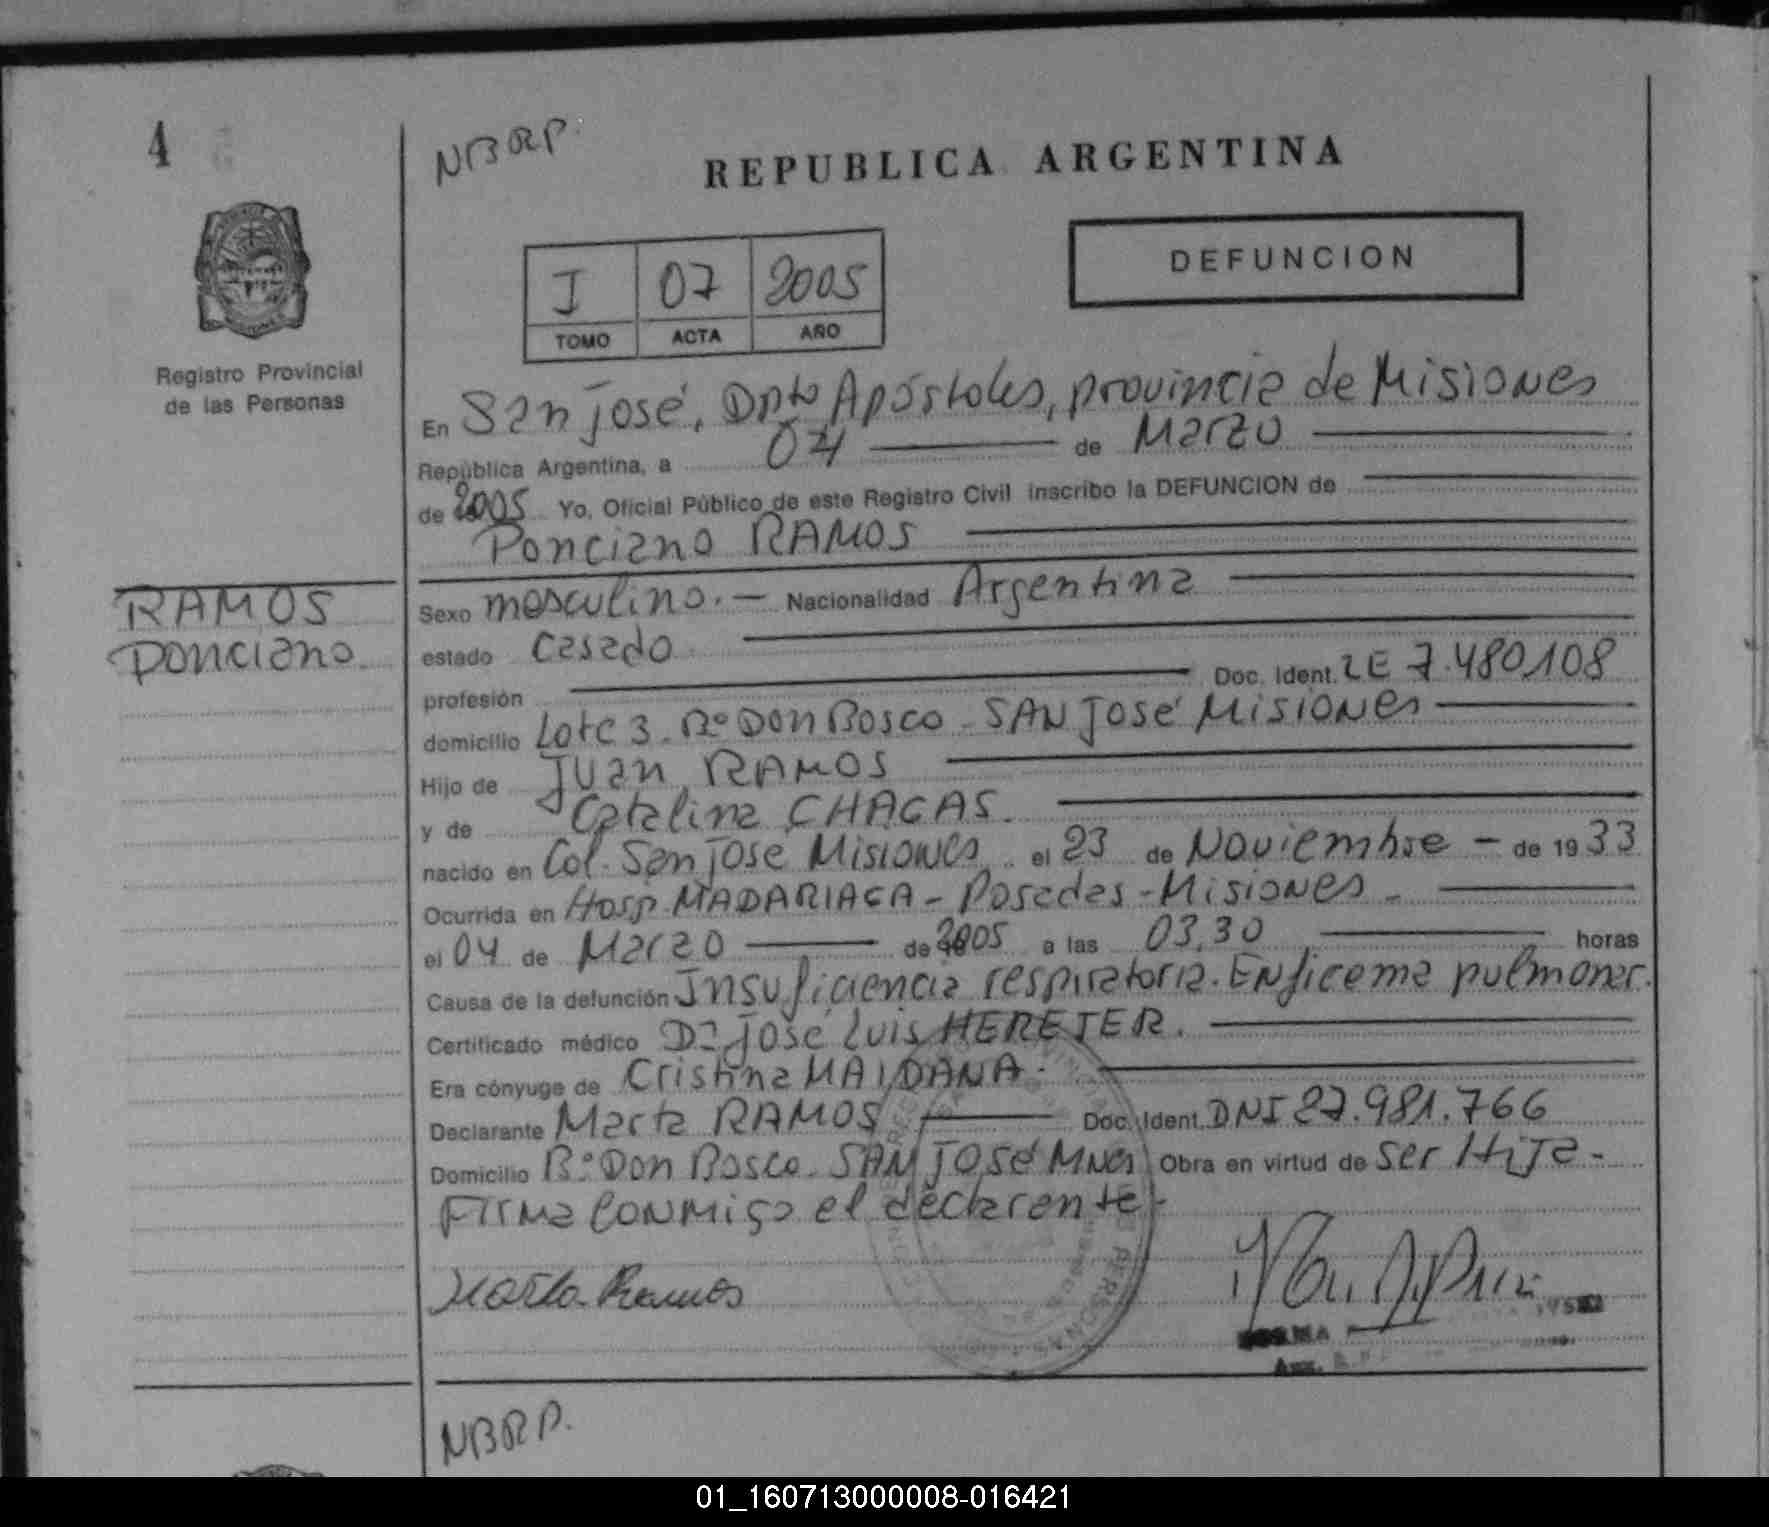 4
NBRP.
REPUBLICA ARGENTINA
I 07 2005
TOMO ACTA AÑO
DEFUNCION
Registro Provincial
de las Personas
En San José, Dpto Apóstoles, provincia de Misiones
República Argentina, a 04 de Marzo
de 2005 Yo, Oficial Público de este Registro Civil inscribo la DEFUNCION de
Ponciano RAMOS
RAMOS
Ponciano
Sexo masculino.- Nacionalidad Argentina
estado casado
profesión Doc. Ident. LE 7.480.108
domicilio Lote 3. Bº DON BOSCO - SAN José Misiones
Hijo de Juan RAMOS
y de Catalina CHAGAS.
nacido en Col. San José Misiones el 23 de Noviembre - de 1933
Ocurrida en Hosp. MADARIAGA - Posadas - Misiones -
el 04 de Marzo de 2005 a las 03,30 horas
Causa de la defunción Insuficiencia respiratoria. Enficema pulmonar.
Certificado médico Dr José Luis HERETER.
Era cónyuge de Cristina MAIDANA.
Declarante Marta RAMOS Doc. Ident. DNI 27.981.766
Domicilio Bº Don Bosco. SAN José Mnes Obra en virtud de ser Hija -
Firma conmigo el declarante-
Marta Ramos
NBRP.
01_160713000008-016421